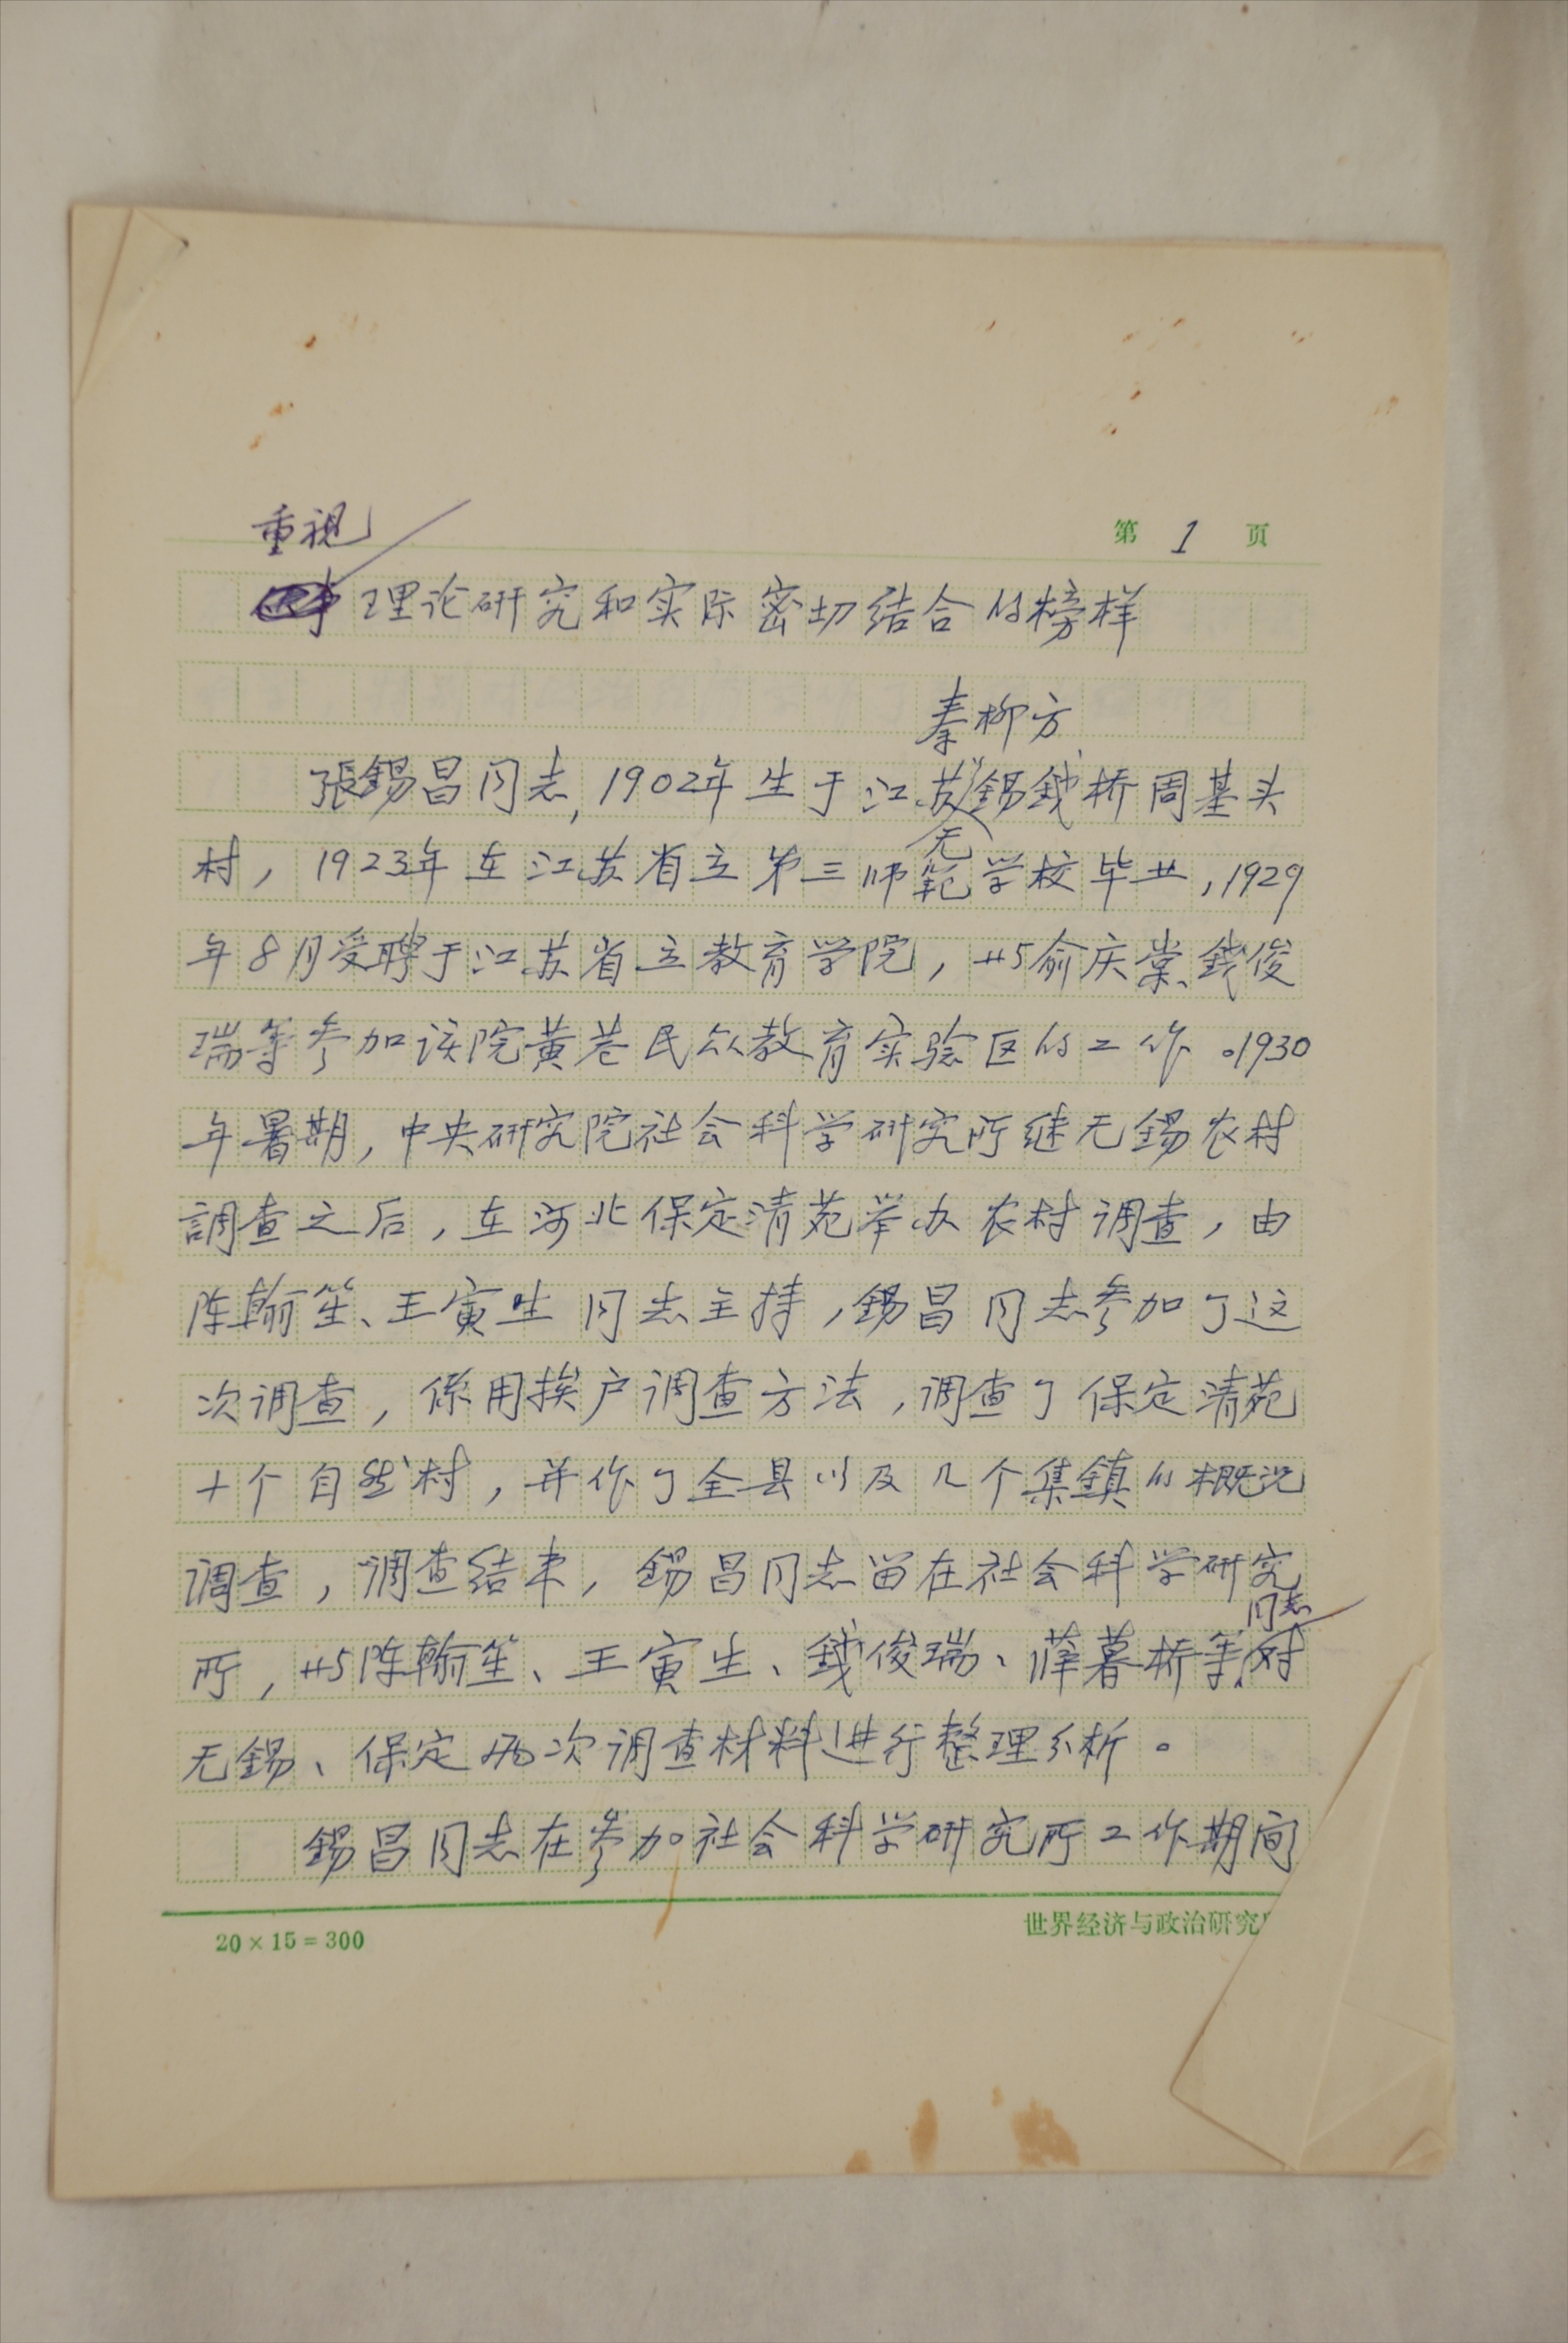 第 1 页
重视
理论研究和实际密切结合的榜样
秦柳方
張錫昌同志,1902年生于江苏无錫錢桥周基头
村，1923年在江苏省立第三师範学校毕业,1929
年8月受聘于江苏省立教育学院，共与俞庆棠、錢俊
瑞等参加该院黄巷民众教育实验区的工作。1930
年暑期，中央研究院社会科学研究所继无錫农村
調查之后，在河北保定清苑举办农村调查，由
陈翰笙、王寅生同志主持，錫昌同志参加了这
次调查，係用挨户调查方法，调查了保定清苑
十个自然村，并作了全县以及几个集鎮的概况
调查，调查结束，錫昌同志留在社会科学研究
所，共与陈翰笙、王寅生、錢俊瑞、薛暮桥等同志对
无錫、保定两次调查材料进行整理分析。
錫昌同志在参加社会科学研究所工作期间
20×15=300
世界经济与政治研究